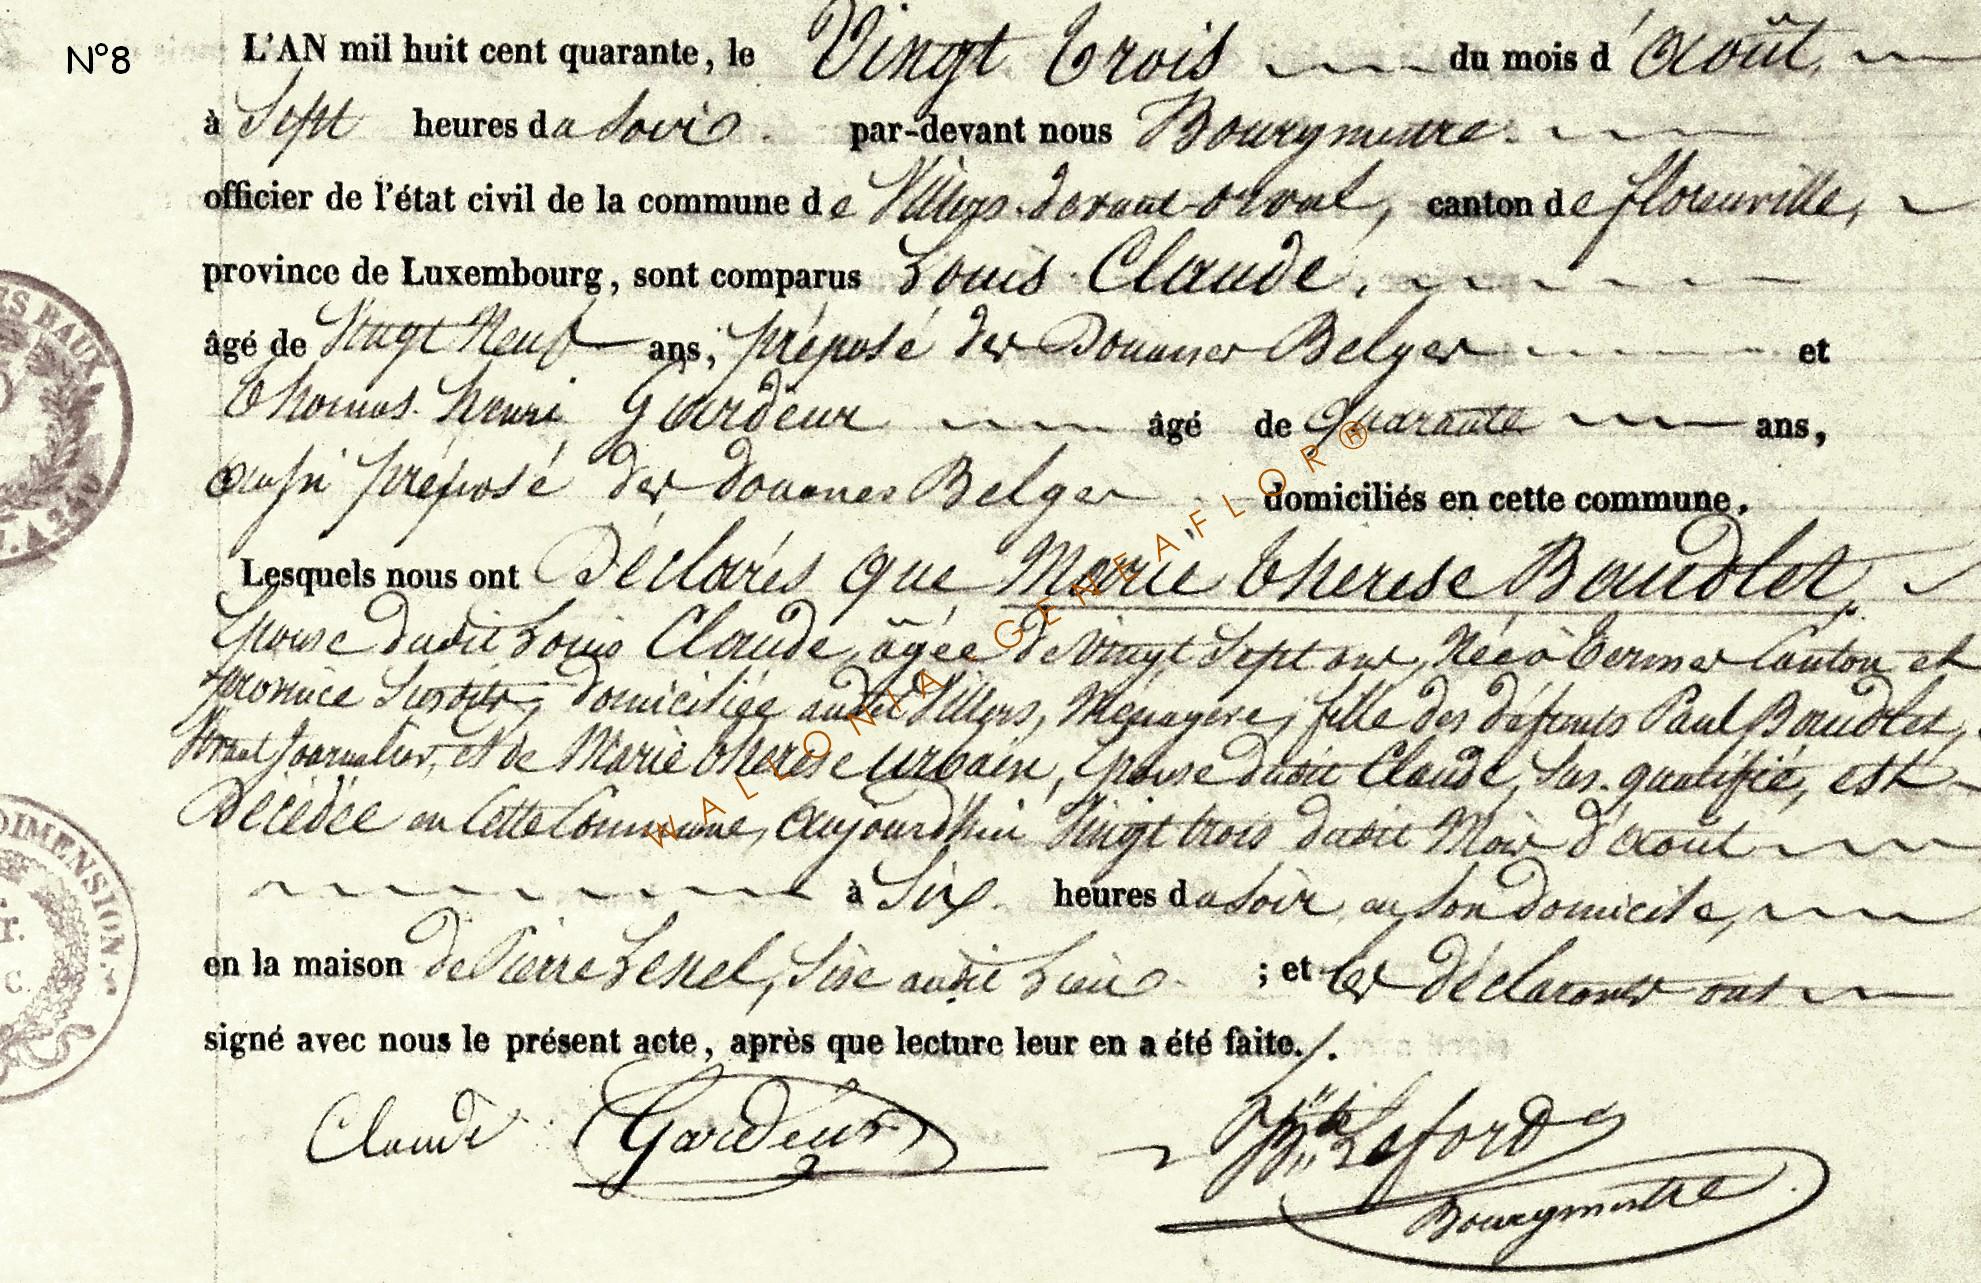 N°8
L'AN mil huit cent quarante, le Vingt trois du mois d'août,
à Sept heures du Soir. par-devant nous Bourgmestre
officier de l'état civil de la commune de Villers-devant-orval, canton de florenville,
province de Luxembourg, sont comparus Louis Claude,
âgé de Vingt Neuf ans, préposé des Douanes Belges et
Thomas henri Gardeur âgé de Quarante ans,
aussi préposé des douanes Belges domiciliés en cette commune.
Lesquels nous ont Déclarés que Marie therese Baudlet,
Epouse dudit Louis Claude, âgée de vingt Sept ans, Née à termes Canton et
province Susdits, domiciliée audit Villers, Ménagère, fille des défunts Paul Baudlet,
Journalier, et de Marie therese urbain, Epouse dudit Claude, Sus-qualifié, est
Décédée en Cette Commune, aujourd'hui Vingt trois dudit Mois d'août
à Six heures du Soir en Son Domicile,
en la maison de Pierre Lesnel, Sise audit Lieu ; et les déclarants ont
signé avec nous le présent acte, après que lecture leur en a été faite./.
Claude Gardeur Laford
Bourgmestre
WALLONIA GENEAFLOR®
DIMENSION.